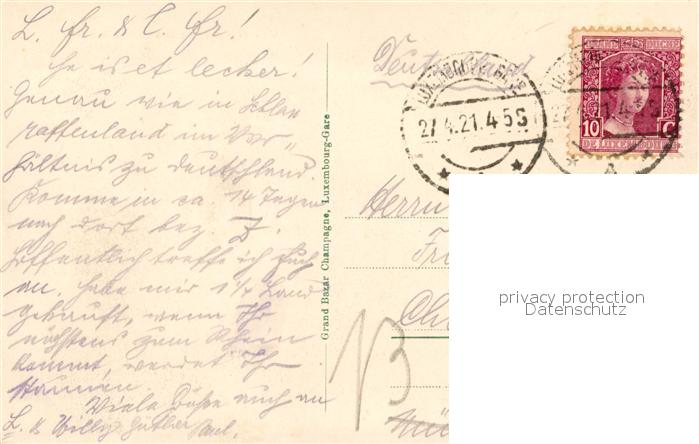 L. Fr. & L. Fr!
he is et lecker!
Genau wie in Schla-
raffenland im Ver-
hältnis zu Deutschland.
Komme in ca. 14 Tagen
nach dort bez. Z.
Hoffentlich treffe ich Euch
an, habe mir 1¼ Land
gekauft, wenn Ihr
nächstens zum Rhein
kommt, werdet Ihr
staunen.
Viele Grüße auch an
L. & Willy
Paul.
Grand Bazar Champagne, Luxembourg-Gare
Deutschland
27.4.21.4-5S
10 C
DE LUXEMBOURG
Herrn
privacy protection
Datenschutz